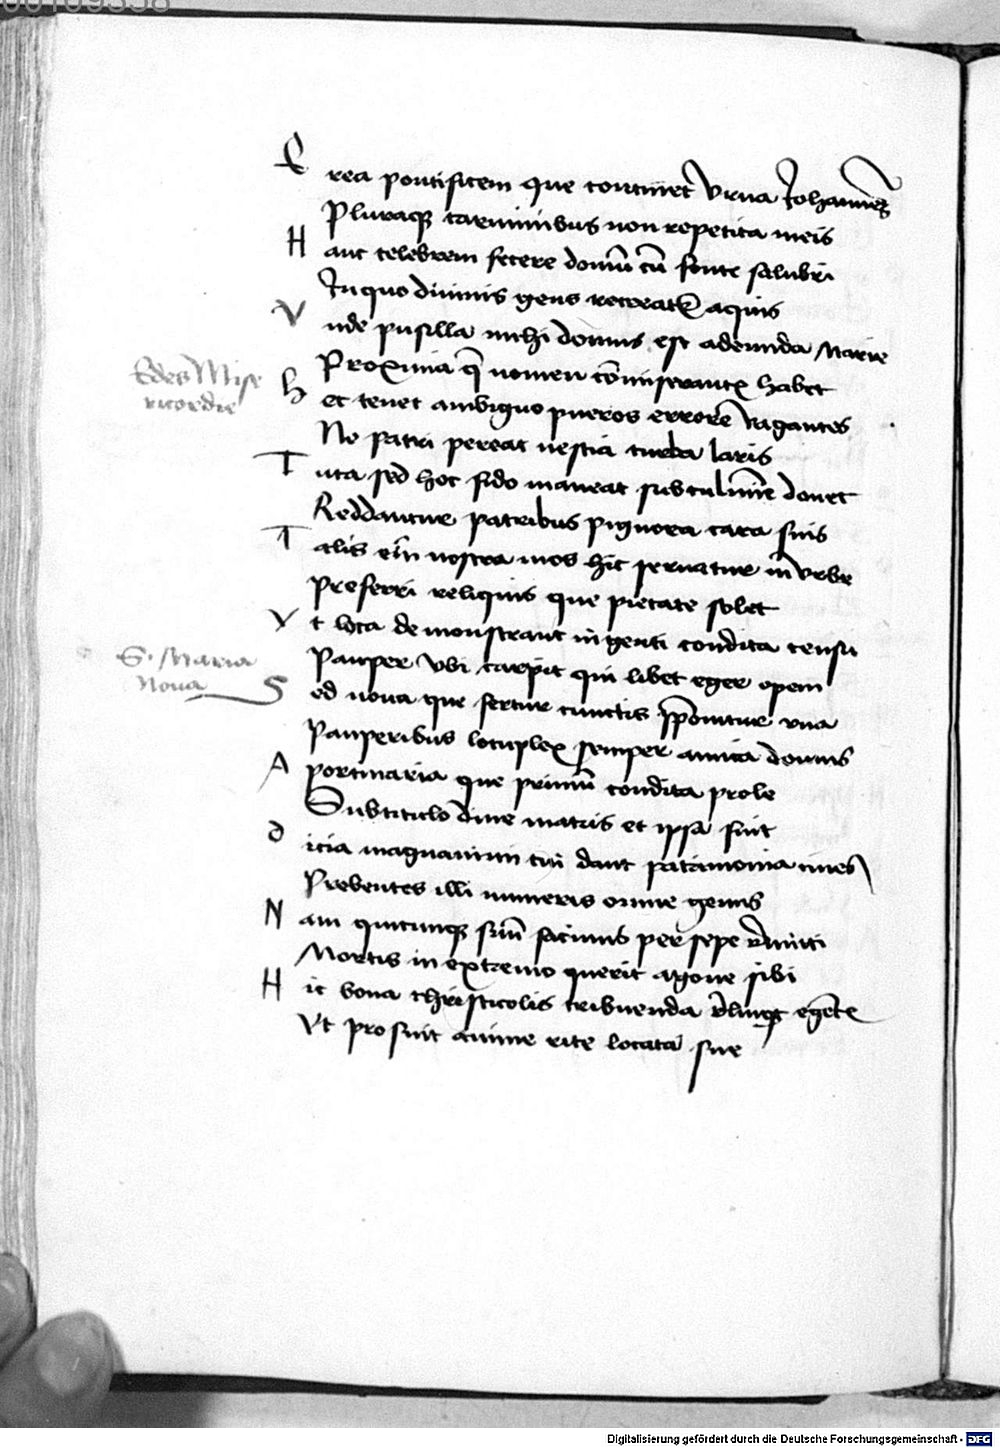 E rea pontificem que continet vrna Johannez
Pluraqz carminibus non repetita meis
H anc celebrem fecere domū cū fonte salubri
In quo diuinis gens recreatr aquis
V nde pusilla michi domus est adeunda Marie
Proxima q̄ nomen cōmiserantis habet
Edes Mise
ricordie
h ec tenet ambiguo pueros errore vagantes
Ne patri pereat nescia turba laris
T uta sed hoc fido maneat sub culmine donec
Reddantur patribus pignora cara suis
T alis em̄ nostra mos hic seruatur in vrbe
Preferri reliquis que pietate solet
V t loca demonstrant ingenti condita censu
Pauper vbi carpit qui libet eger opem
S. Maria
Noua
S ed noua que fertur cunctis pponitur vna
Pauperibus locuplex semper amica domus
A portinaria que primū condita prole
Sub titulo diue matris et ipsa fuit
d icia magnanimi cui dant patrimonia ciues
Prebentes illi muneris omne genus
N am quicunqz suū facinus per sepe remitti
Mortis in extremo querit agone sibi
H ic bona christicolis tribuenda relinqt egente
Vt prosint anime rite locata sue
Digitalisierung gefördert durch die Deutsche Forschungsgemeinschaft - DFG